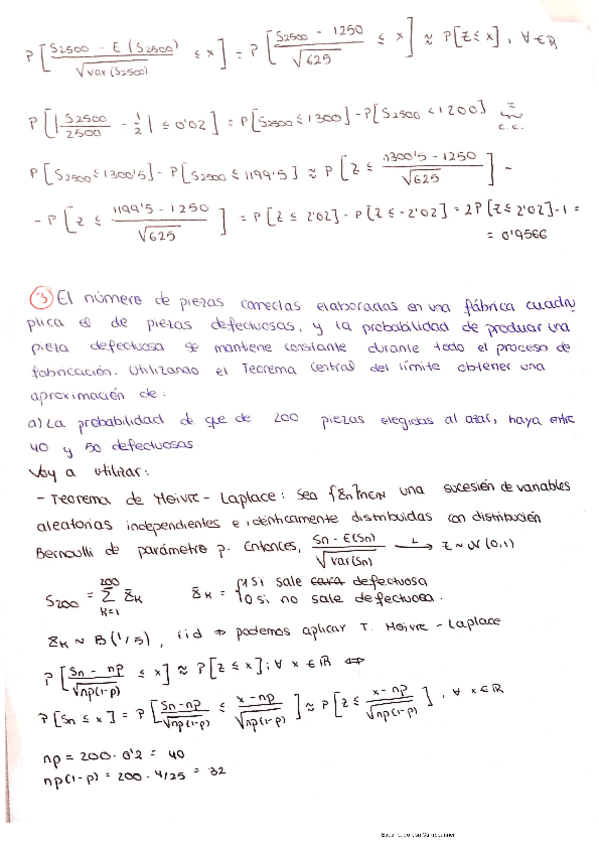 P[ (S2500 - E(S2500)) / √var(S2500) ≤ x ] = P[ (S2500 - 1250) / √625 ≤ x ] ≈ P[Z ≤ x], ∀ ∈ ℝ
P[ |S2500/2500 - 1/2| ≤ 0'02 ] = P[S2500 ≤ 1300] - P[S2500 < 1200] ≈ c.c.
P[S2500 ≤ 1300'5] - P[S2500 ≤ 1199'5] ≈ P[ Z ≤ (1300'5 - 1250) / √625 ] -
- P[ Z ≤ (1199'5 - 1250) / √625 ] = P[Z ≤ 2'02] - P[Z ≤ -2'02] = 2P[Z ≤ 2'02] - 1 =
= 0'9566
③ El número de piezas correctas elaboradas en una fábrica cuadru
plica el de piezas defectuosas, y la probabilidad de producir una
pieza defectuosa se mantiene constante durante todo el proceso de
fabricación. Utilizando el Teorema Central del límite obtener una
aproximación de:
a) La probabilidad de que de 200 piezas elegidas al azar, haya entre
40 y 50 defectuosas.
Voy a utilizar:
- Teorema de Moivre - Laplace: Sea {ξn}n∈ℕ una sucesión de variables
aleatorias independientes e idénticamente distribuidas con distribución
Bernoulli de parámetro p. Entonces, (Sn - E(Sn)) / √var(Sn) —L→ Z ~ N(0,1)
S200 = Σ_{k=1}^{200} ξk ξk = { 1 si sale cara defectuosa
0 si no sale defectuosa.
ξk ~ B(1/5), iid ⇒ podemos aplicar T. Moivre - Laplace
P[ (Sn - np) / √np(1-p) ≤ x ] ≈ P[Z ≤ x]; ∀ x ∈ ℝ ⇔
P[Sn ≤ x] = P[ (Sn - np) / √np(1-p) ≤ (x - np) / √np(1-p) ] ≈ P[ Z ≤ (x - np) / √np(1-p) ], ∀ x ∈ ℝ
np = 200 · 0'2 = 40
np(1-p) = 200 · 4/25 = 32